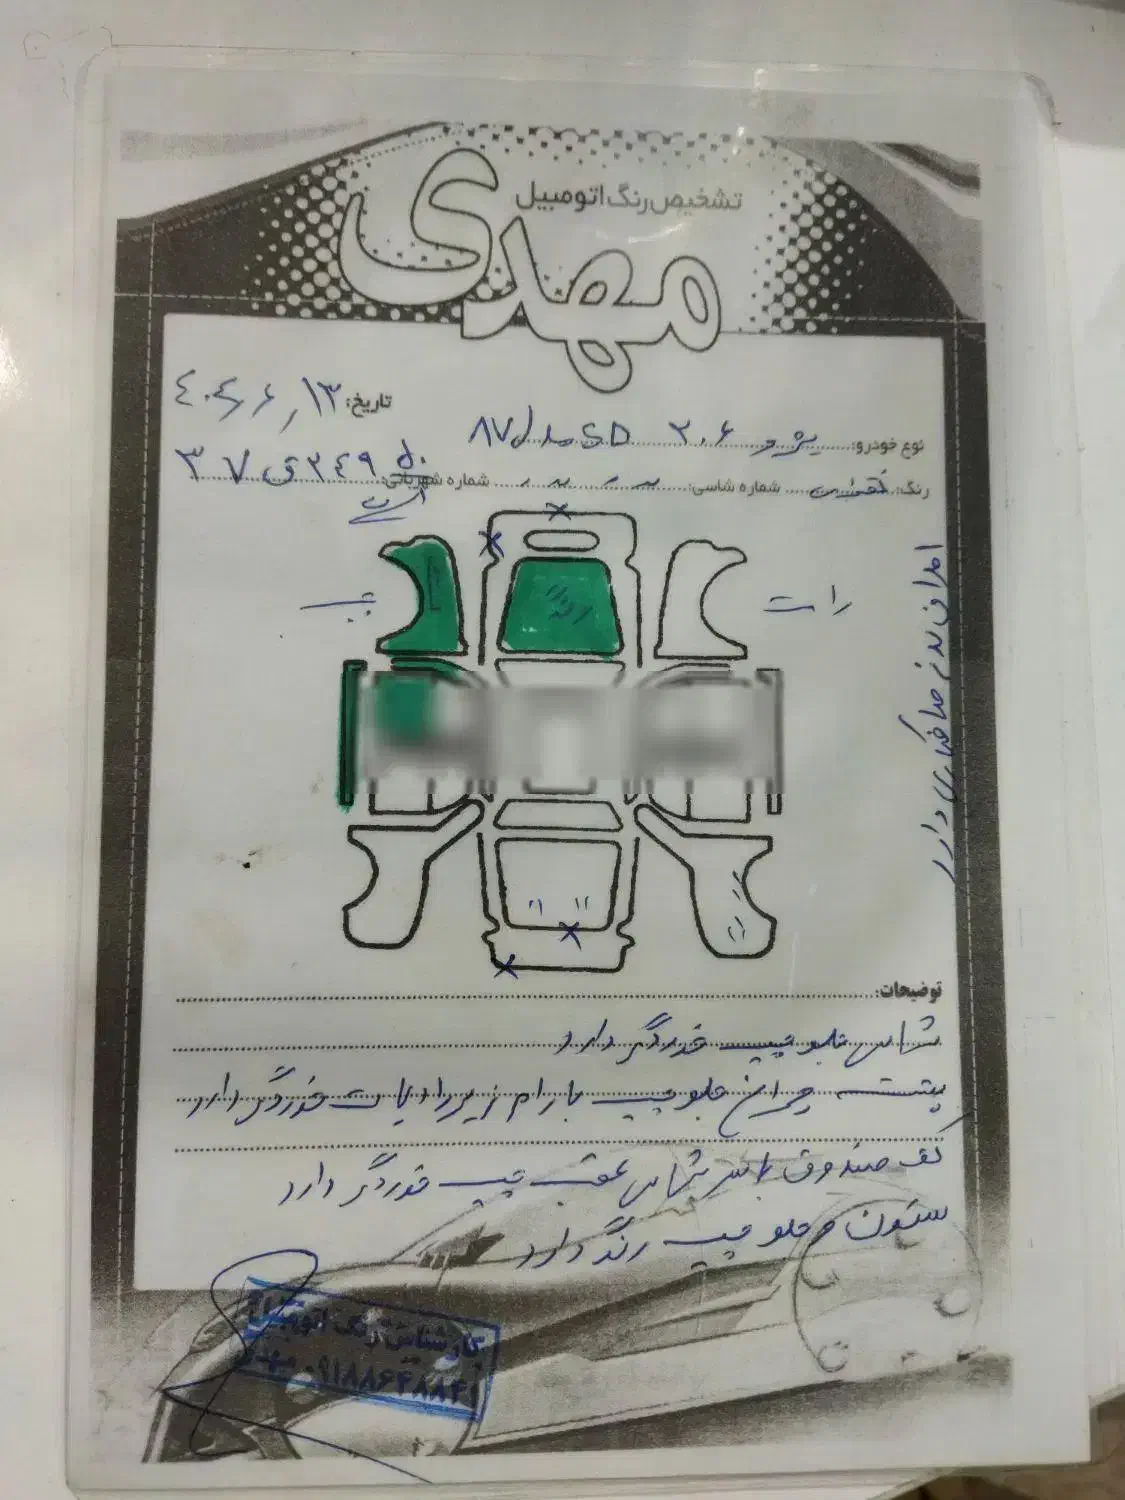 تشخیص رنگ اتومبیل
مهدی
تاریخ: ۱۳ / ۶ / ۴۰۴
نوع خودرو: پژو ۲۰۶ SD مدل ۸۷
رنگ: شماره شاسی: شماره شهربانی: ۳۴۹ ق ۳۷
راست
چپ
رنگ
اطراف بدنه صافکاری دارد
توضیحات:
شاسی جلو چپ خوردگی دارد
پشت چراغ جلو چپ با رام زیر رادیات خوردگی دارد
کف صندوق با سر شاسی عقب چپ خوردگی دارد
ستون جلو چپ رنگ دارد
کارشناس رنگ اتومبیل
مهدی ۰۹۱۸۸۶۴۸۸۴۱